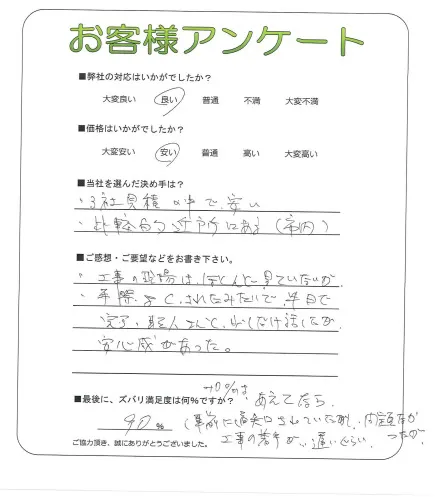 お客様アンケート
■弊社の対応はいかがでしたか？
大変良い 良い 普通 不満 大変不満
■価格はいかがでしたか？
大変安い 安い 普通 高い 大変高い
■当社を選んだ決め手は？
・3社見積の中で、安い
・比較的近所にある（市内）
■ご感想・ご要望などをお書き下さい。
・工事の現場は、ほとんど見ていないが、
手際よく、されたみたいで、半日で
完了・職人さんと、少しだけ話したが、
安心感があった。
■最後に、ズバリ満足度は何％ですか？
-10%は、あえてなら、
90 %
（事前に連絡はされていた為、問題なかったが、
工事の着手が、遅いぐらい
ご協力頂き、誠にありがとうございました。